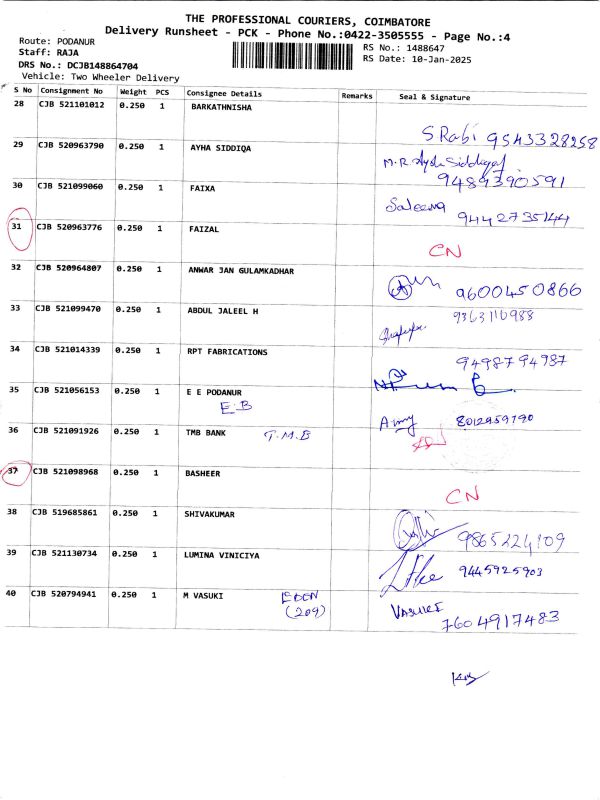 THE PROFESSIONAL COURIERS, COIMBATORE
Delivery Runsheet - PCK - Phone No.:0422-3505555 - Page No.:4
Route: PODANUR
RS No.: 1488647
Staff: RAJA
RS Date: 10-Jan-2025
DRS No.: DCJB148864704
Vehicle: Two Wheeler Delivery
S No Consignment No Weight PCS Consignee Details Remarks Seal & Signature
28 CJB 521101012 0.250 1 BARKATHNISHA S Rabi 9543328258
29 CJB 520963790 0.250 1 AYHA SIDDIQA M.R. 9489390591
30 CJB 521099060 0.250 1 FAIXA Saleema 9442735144
31 CJB 520963776 0.250 1 FAIZAL CN
32 CJB 520964807 0.250 1 ANWAR JAN GULAMKADHAR 9600450866
33 CJB 521099470 0.250 1 ABDUL JALEEL H 9363110988
34 CJB 521014339 0.250 1 RPT FABRICATIONS 9498794987
35 CJB 521056153 0.250 1 E E PODANUR
E.B
36 CJB 521091926 0.250 1 TMB BANK T.M.B 8012959190
37 CJB 521098968 0.250 1 BASHEER CN
38 CJB 519685861 0.250 1 SHIVAKUMAR 9865224109
39 CJB 521130734 0.250 1 LUMINA VINICIYA 9445925903
40 CJB 520794941 0.250 1 M VASUKI EDEN VASUKI
(209) 7604917483